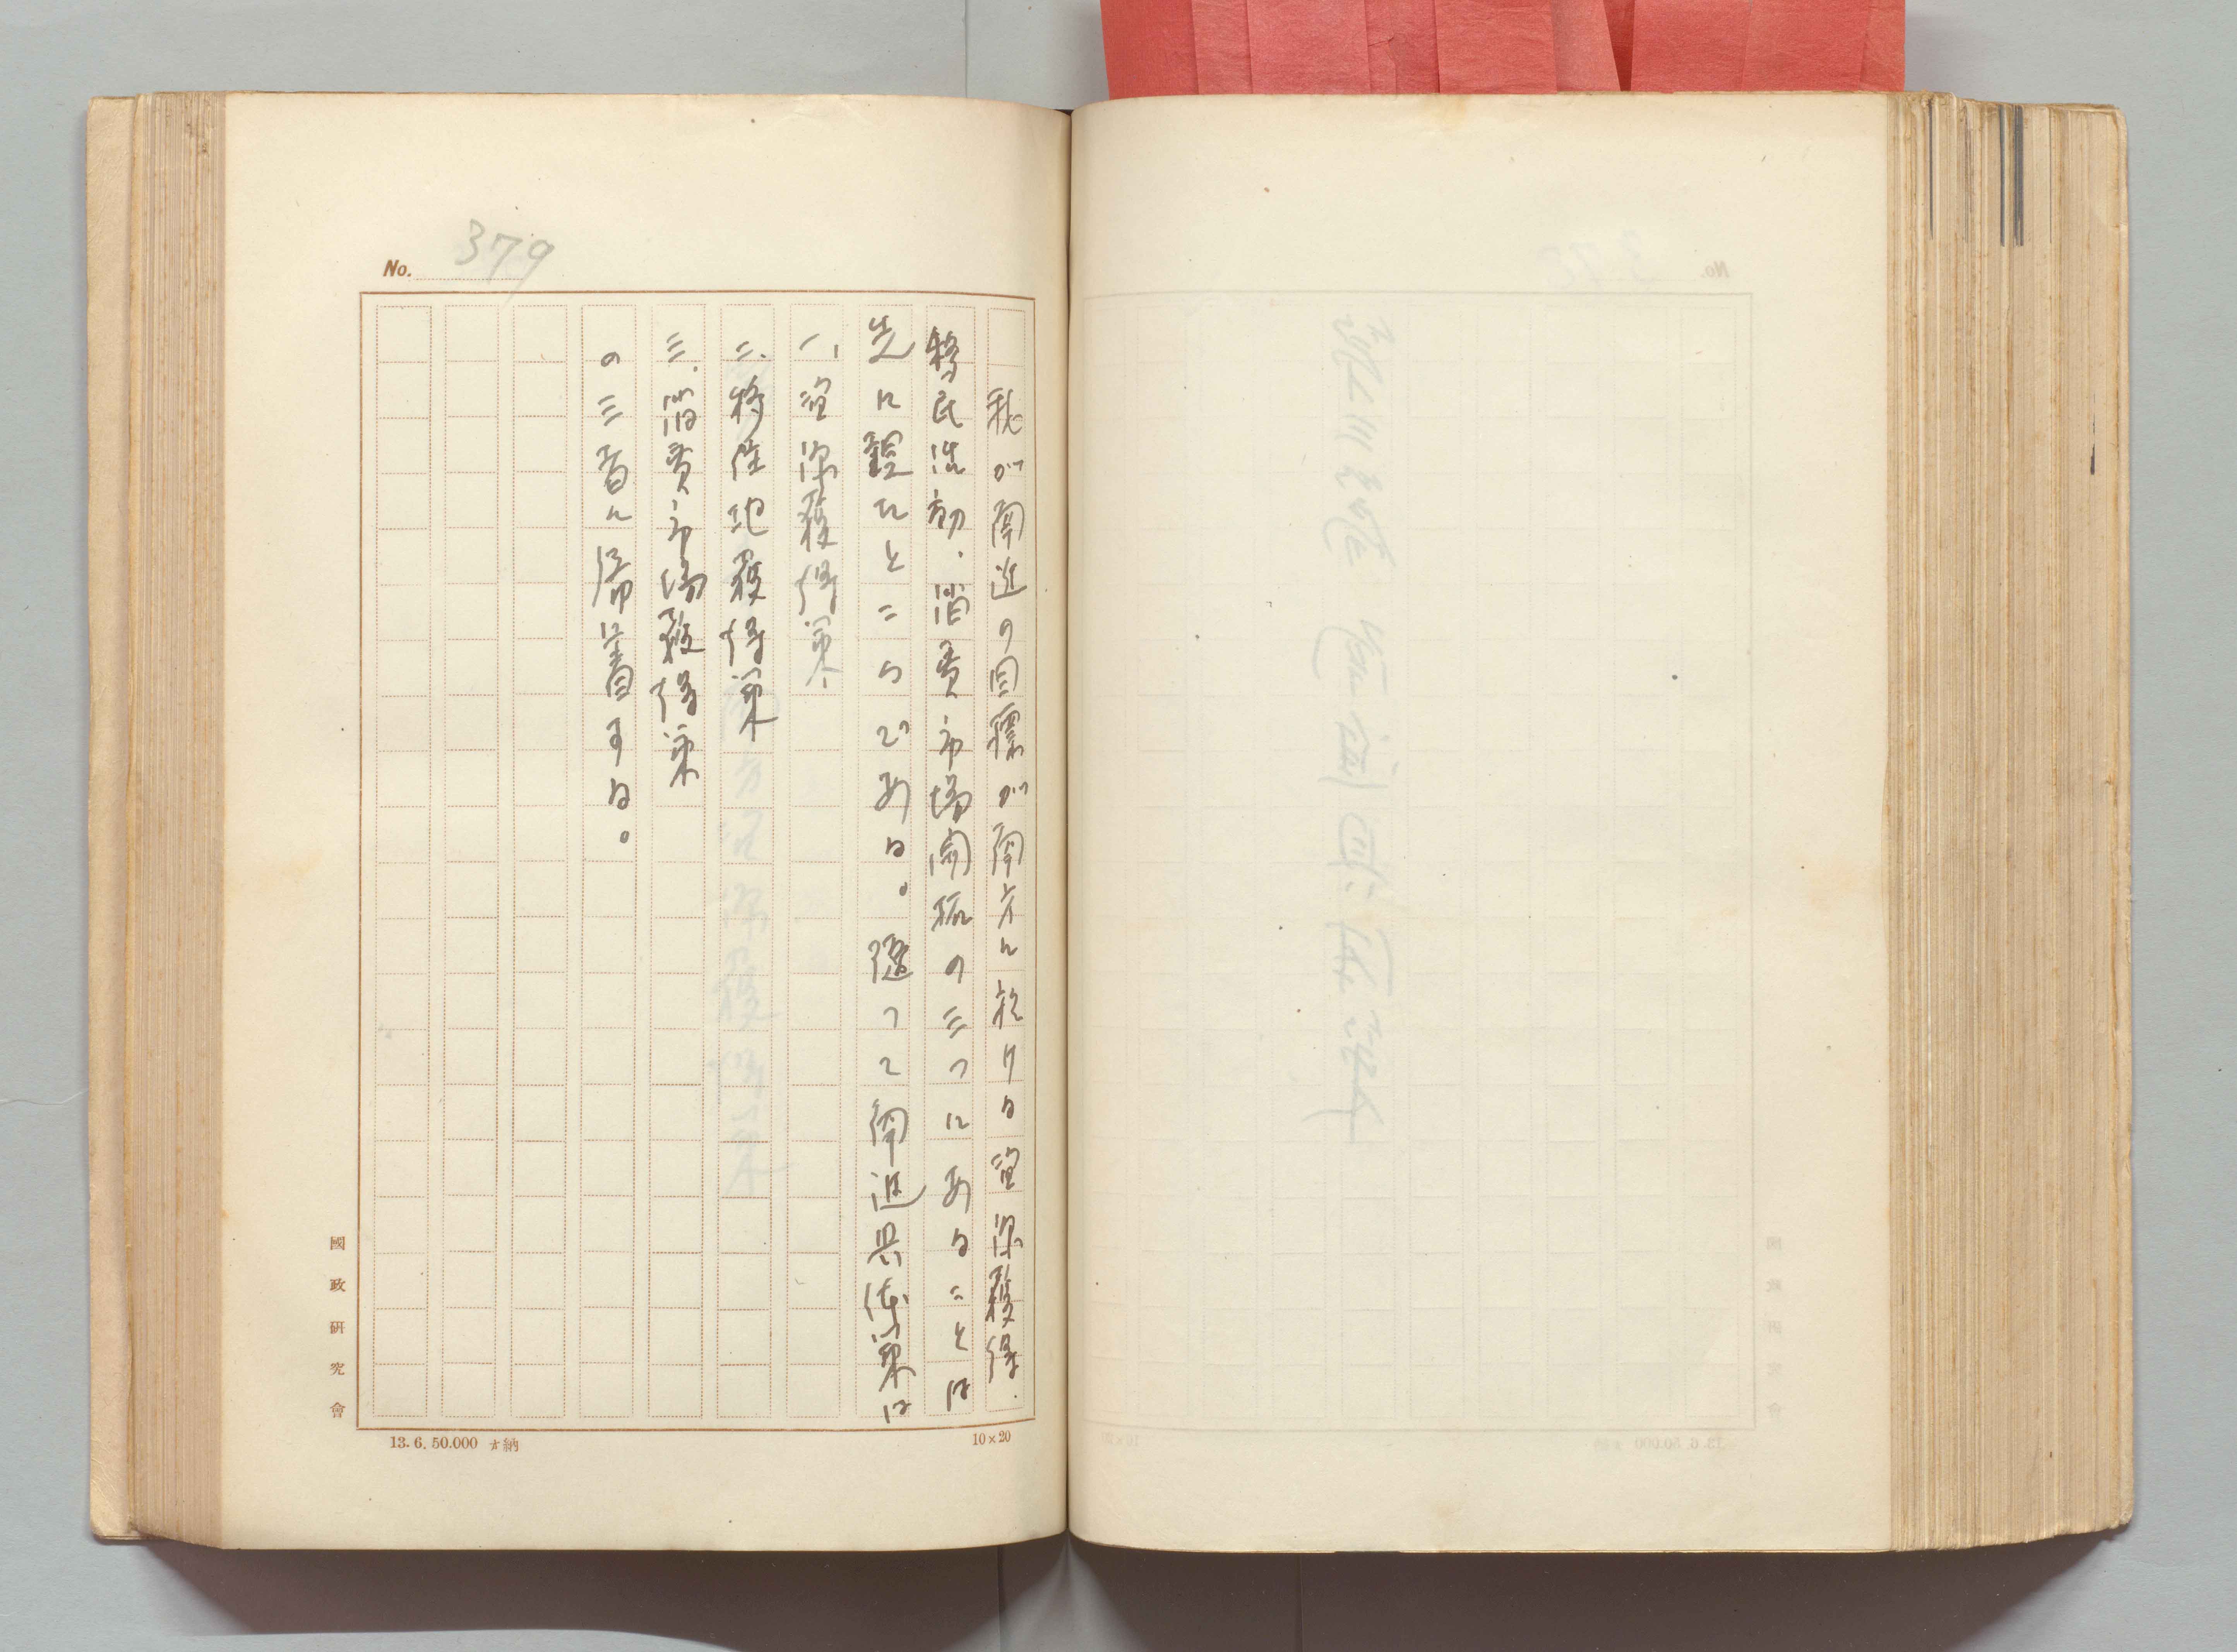 No. 379
我が南進の目標が南方に於ける資源獲得、
移民活動、消費市場開拓の三つにあることは
先に觀たところである。隨つて南進具体策は
一、資源獲得策
二、移住地獲得策
三、消費市場獲得策
の三者に歸着する。
國政研究會
13.6.50.000 納
10×20